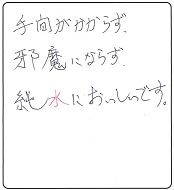 手間がかからず、
邪魔にならず、
純水においしいです。